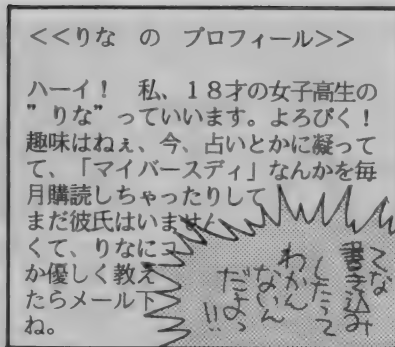 <<りな の プロフィール>>
ハーイ! 私、18才の女子高生の
"りな"っていいます。よろぴく!
趣味はねぇ、今、占いとかに凝って
て、「マイバースディ」なんかを毎
月購読しちゃったりして
まだ彼氏はいません
くて、りなにコ
か優しく教え
たらメール下
ね。
てな
書き込み
したって
わかん
ないん
だよっ
!!